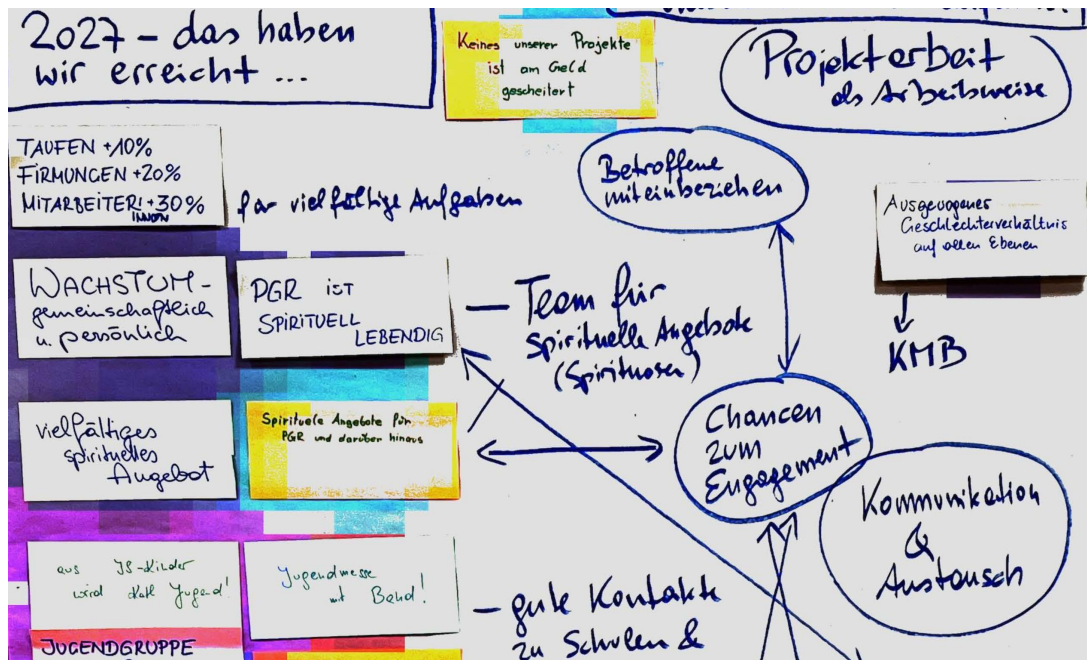 2027 - das haben
wir erreicht ...
Keines unserer Projekte
ist am Geld
gescheitert
Projektarbeit
als Arbeitsweise
TAUFEN +10%
FIRMUNGEN +20%
MITARBEITER! +30%
INNEN
für vielfältige Aufgaben
Betroffene
miteinbeziehen
Ausgewogenes
Geschlechterverhältnis
auf allen Ebenen
KMB
WACHSTUM -
gemeinschaftlich
u. persönlich
PGR IST
SPIRITUELL
LEBENDIG
- Team für
spirituelle Angebote
(Spirituosen)
vielfältiges
spirituelles
Angebot
Spirituelle Angebote für
PGR und darüber hinaus
Chancen
zum
Engagement
Kommunikation
&
Austausch
aus JS-Kinder
wird Kath Jugend!
Jugendmesse
mit Band!
- gute Kontakte
zu Schulen &
JUGENDGRUPPE